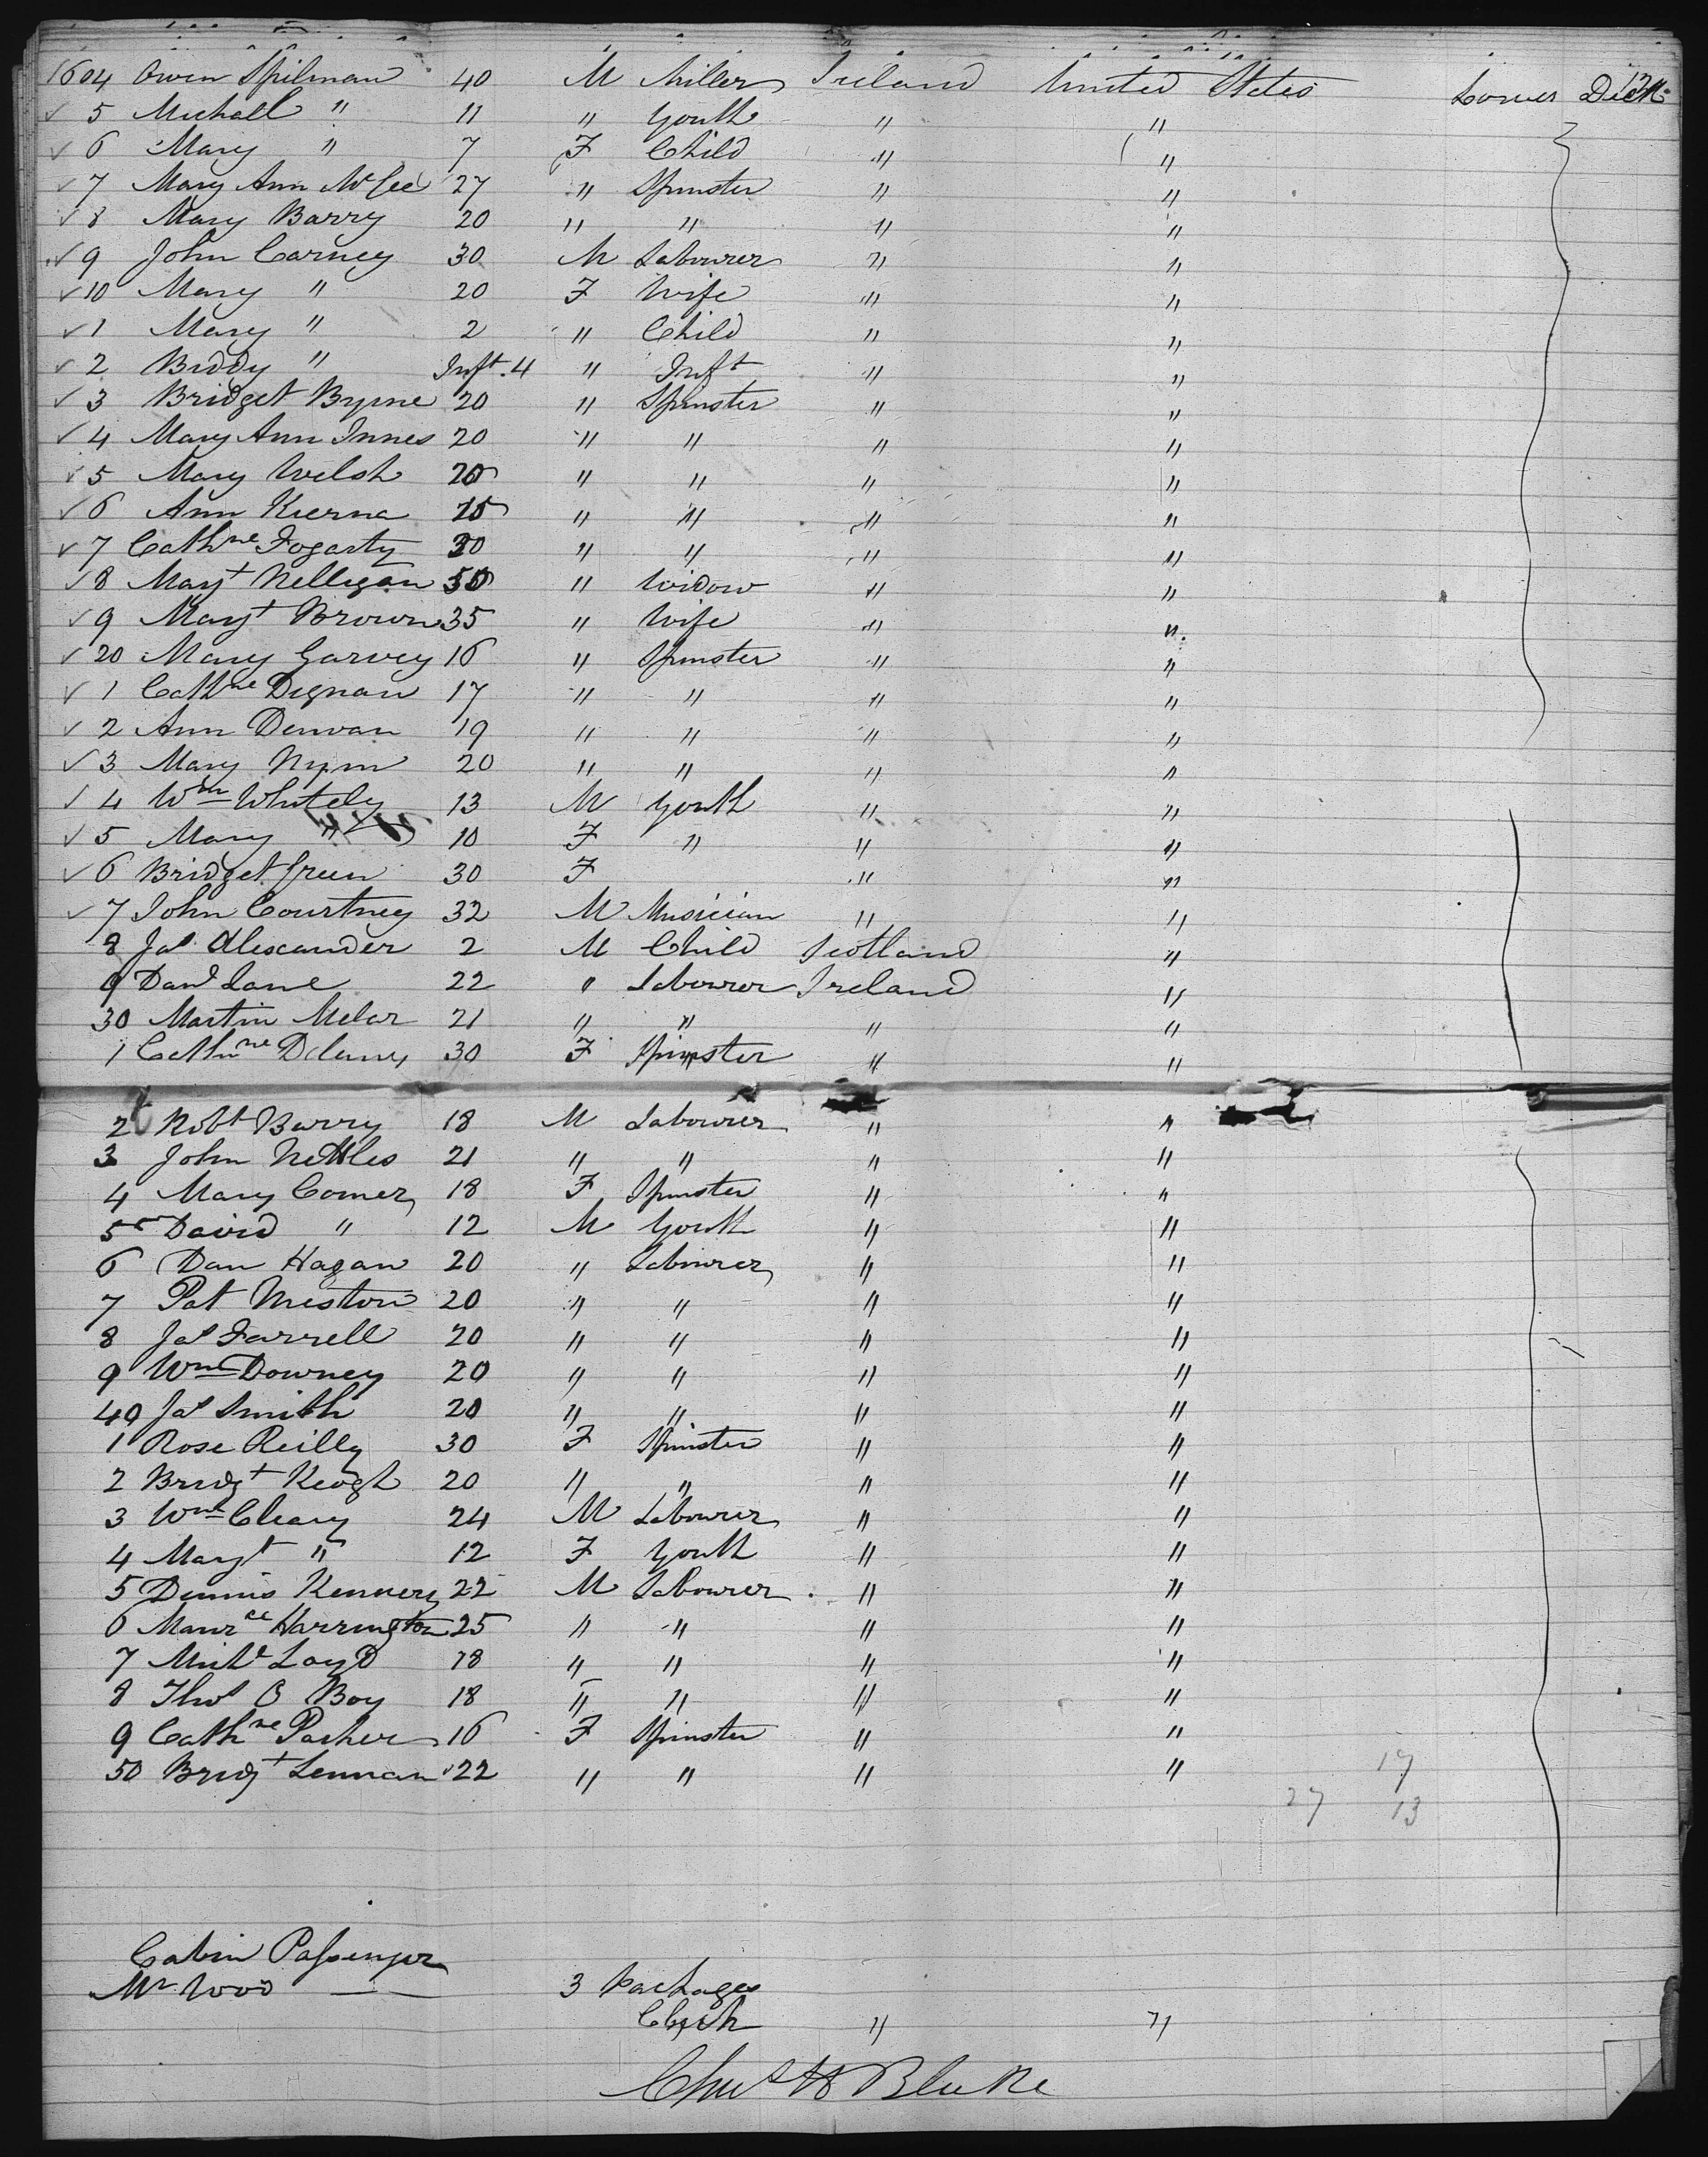 1604 Owen Spilman 40 M Miller Ireland United States Lower Deck
5 Michall " 11 " Youth " "
6 Mary " 7 F Child " "
7 Mary Ann McGee 27 " Spinster " "
8 Mary Barry 20 " " " "
9 John Carney 30 M Labourer " "
10 Mary " 20 F Wife " "
1 Mary " 2 " Child " "
2 Biddy " Inft. 4 " Inft " "
3 Bridget Byrne 20 " Spinster " "
4 Mary Ann Innes 20 " " " "
5 Mary Welsh 20 " " " "
6 Ann Kierna 15 " " " "
7 Cathne Fogarty 30 " " " "
8 Margt Nelligan 50 " Widow " "
9 Margt Brown 35 " Wife " "
20 Mary Garvey 16 " Spinster " "
1 Cathne Dignan 17 " " " "
2 Ann Derwan 19 " " " "
3 Mary 20 " " " "
4 Wm Whitely 13 M Youth " "
5 Mary " 10 F " " "
6 Bridget Green 30 F " "
7 John Courtney 32 M Musician " "
8 Jas Alexander 2 M Child Scotland "
9 Danl Lane 22 " Labourer Ireland "
30 Martin Melar 21 " " " "
1 Cathne Delaney 30 F Spinster " "
2 Robt Barry 18 M Labourer " "
3 John Nettles 21 " " " "
4 Mary Comer 18 F Spinster " "
5 David " 12 M Youth " "
6 Dan Hagan 20 " Labourer " "
7 Pat 20 " " " "
8 Jas Farrell 20 " " " "
9 Wm Downey 20 " " " "
40 Jas Smith 20 " " " "
1 Rose Reilly 30 F Spinster " "
2 Bridgt Keogh 20 " " " "
3 Wm Cleary 24 M Labourer " "
4 Margt " 12 F Youth " "
5 Dennis Kennery 22 M Labourer " "
6 Maurce Harrington 25 " " " "
7 Michl Loyd 18 " " " "
8 Thos O Boy 18 " " " "
9 Cathne Parker 16 F Spinster " "
50 Bridgt Lennan 22 " " " "
17
27 13
Cabin Passenger
Mr Wood 3 Packages
Clerk " "
Chas H Blake